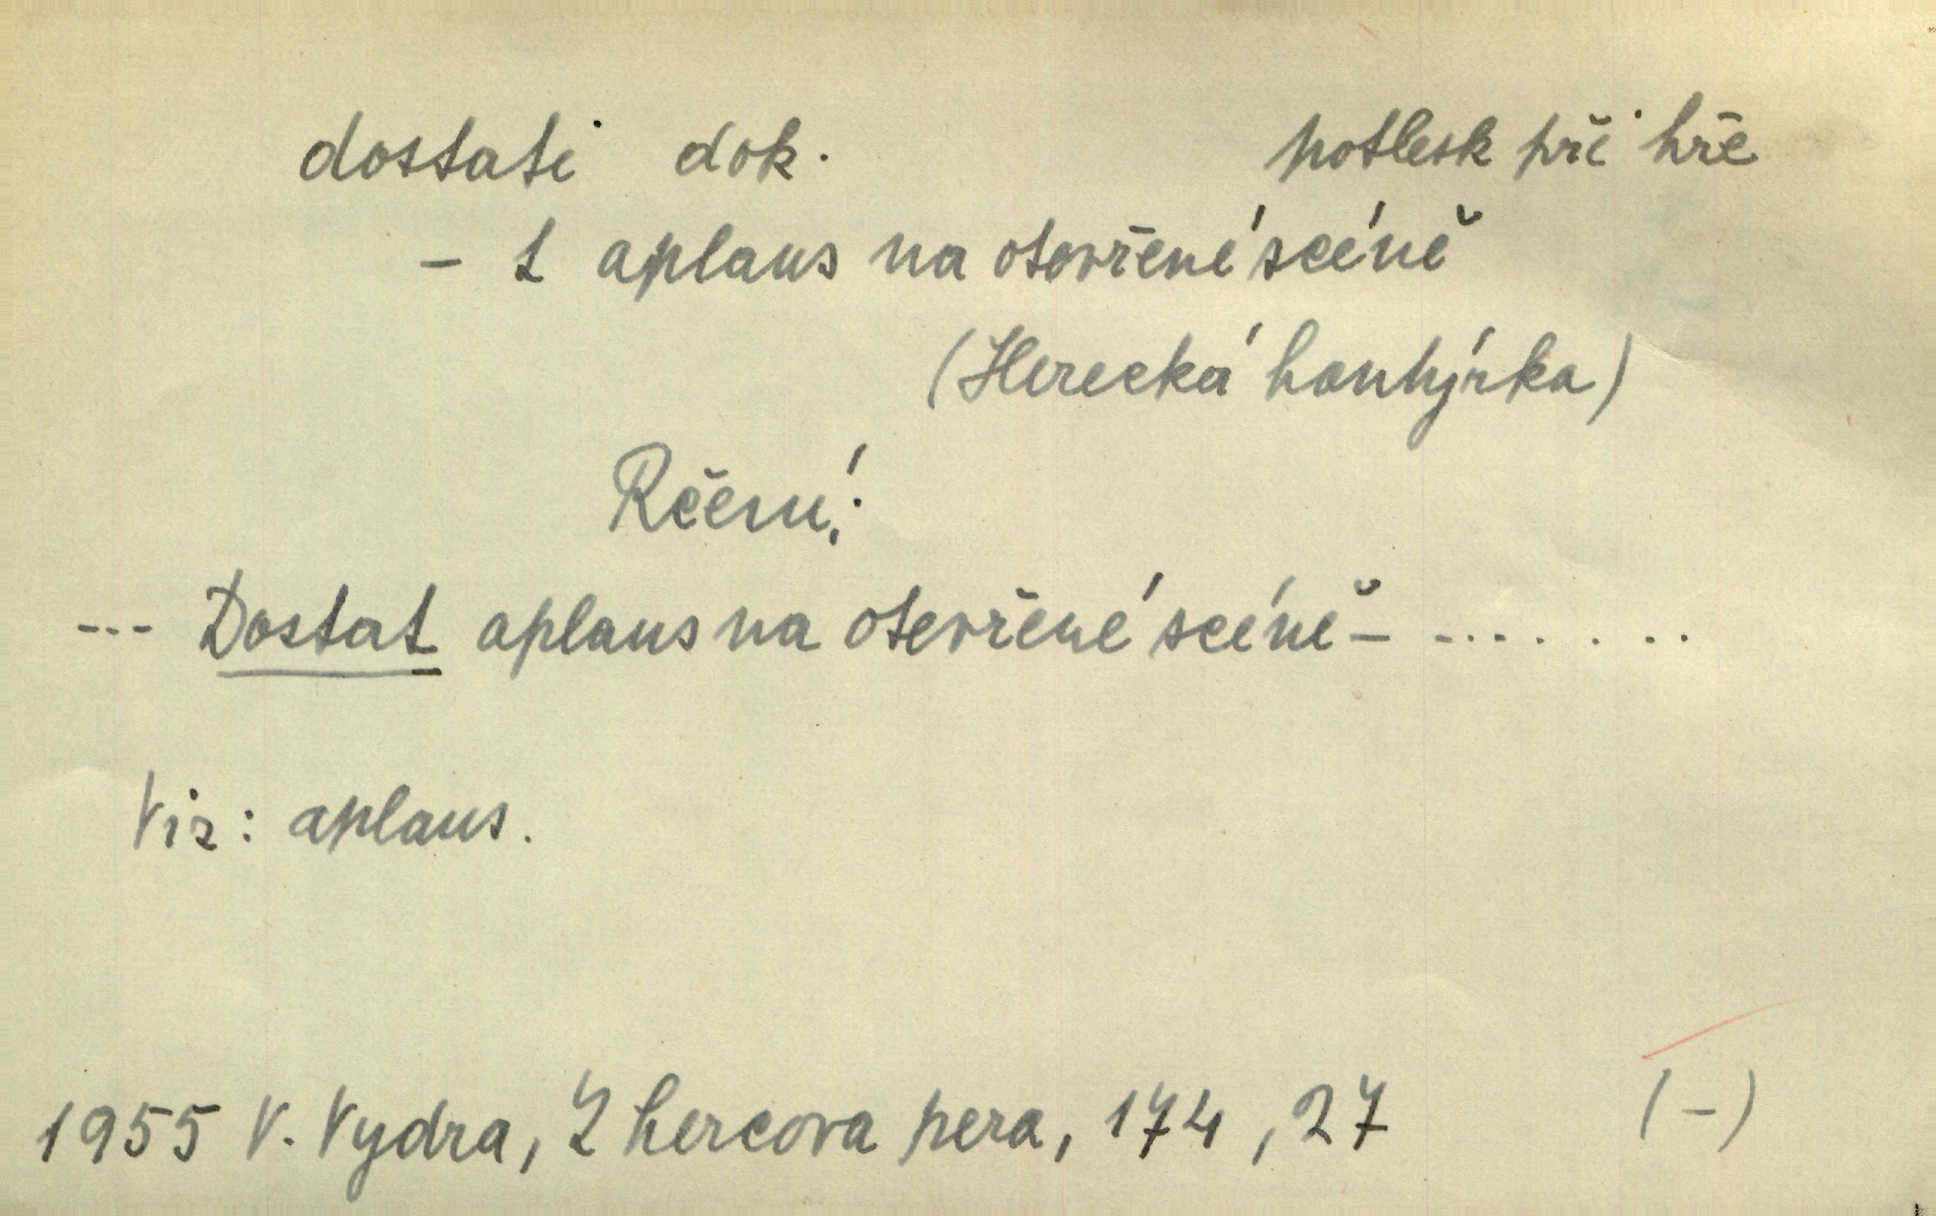 dostati dok. potlesk při hře
- t aplaus na otevřené scéně
(Herecká hantýrka)
Rčení:
--- Dostat aplaus na otevřené scéně - .......
Viz: aplaus.
1955 V. Vydra, Z hercova pera, 174, 27 (-)